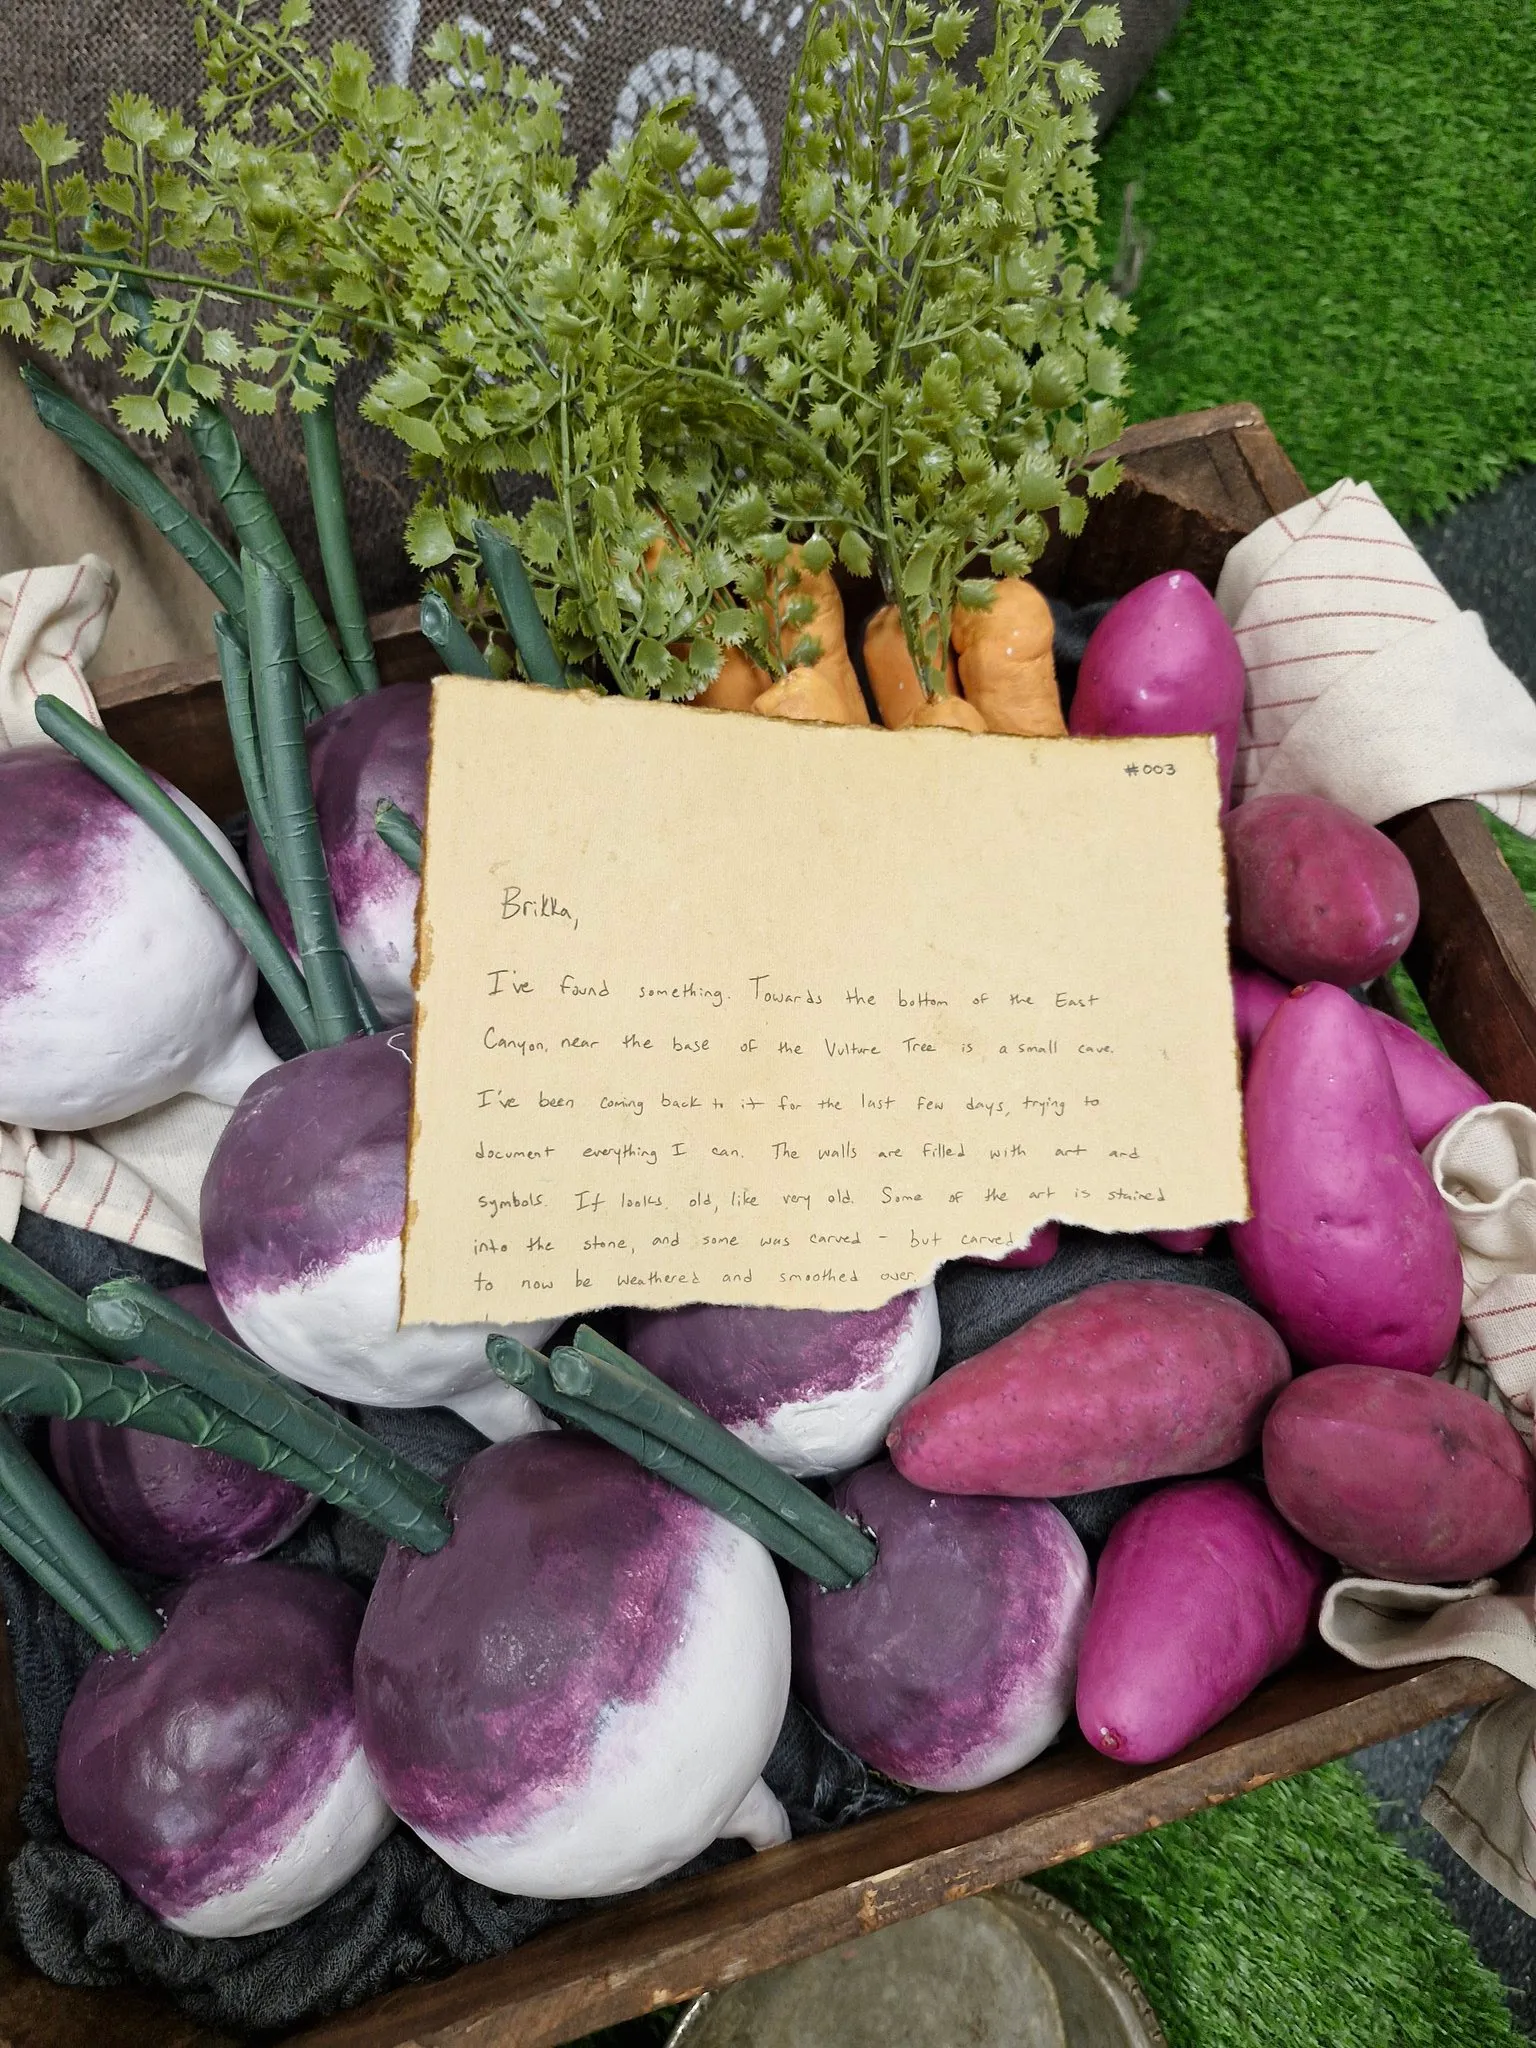 #003
Brikka,
I've found something. Towards the bottom of the East
Canyon, near the base of the Vulture Tree is a small cave.
I've been coming back to it for the last few days, trying to
document everything I can. The walls are filled with art and
symbols. It looks old, like very old. Some of the art is stained
into the stone, and some was carved - but carved
to now be weathered and smoothed over.